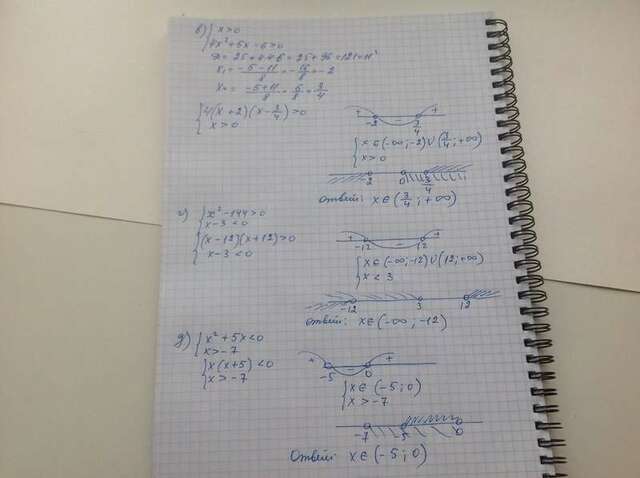 в) { x > 0
4x² + 5x - 6 > 0
D = 25 + 4·4·6 = 25 + 96 = 121 = 11²
x₁ = (-5-11)/8 = -16/8 = -2
x₂ = (-5+11)/8 = 6/8 = 3/4
{ 4(x+2)(x-3/4) > 0
x > 0
+ -2 - 3/4 +
{ x ∈ (-∞; -2) ∪ (3/4; +∞)
x > 0
-2 0 3/4
Ответ: x ∈ (3/4; +∞)
г) { x² - 144 > 0
x - 3 < 0
{ (x-12)(x+12) > 0
x - 3 < 0
+ -12 - 12 +
{ x ∈ (-∞; -12) ∪ (12; +∞)
x < 3
-12 3 12
Ответ: x ∈ (-∞; -12)
д) { x² + 5x < 0
x > -7
{ x(x+5) < 0
x > -7
+ -5 - 0 +
{ x ∈ (-5; 0)
x > -7
-7 -5 0
Ответ: x ∈ (-5; 0)